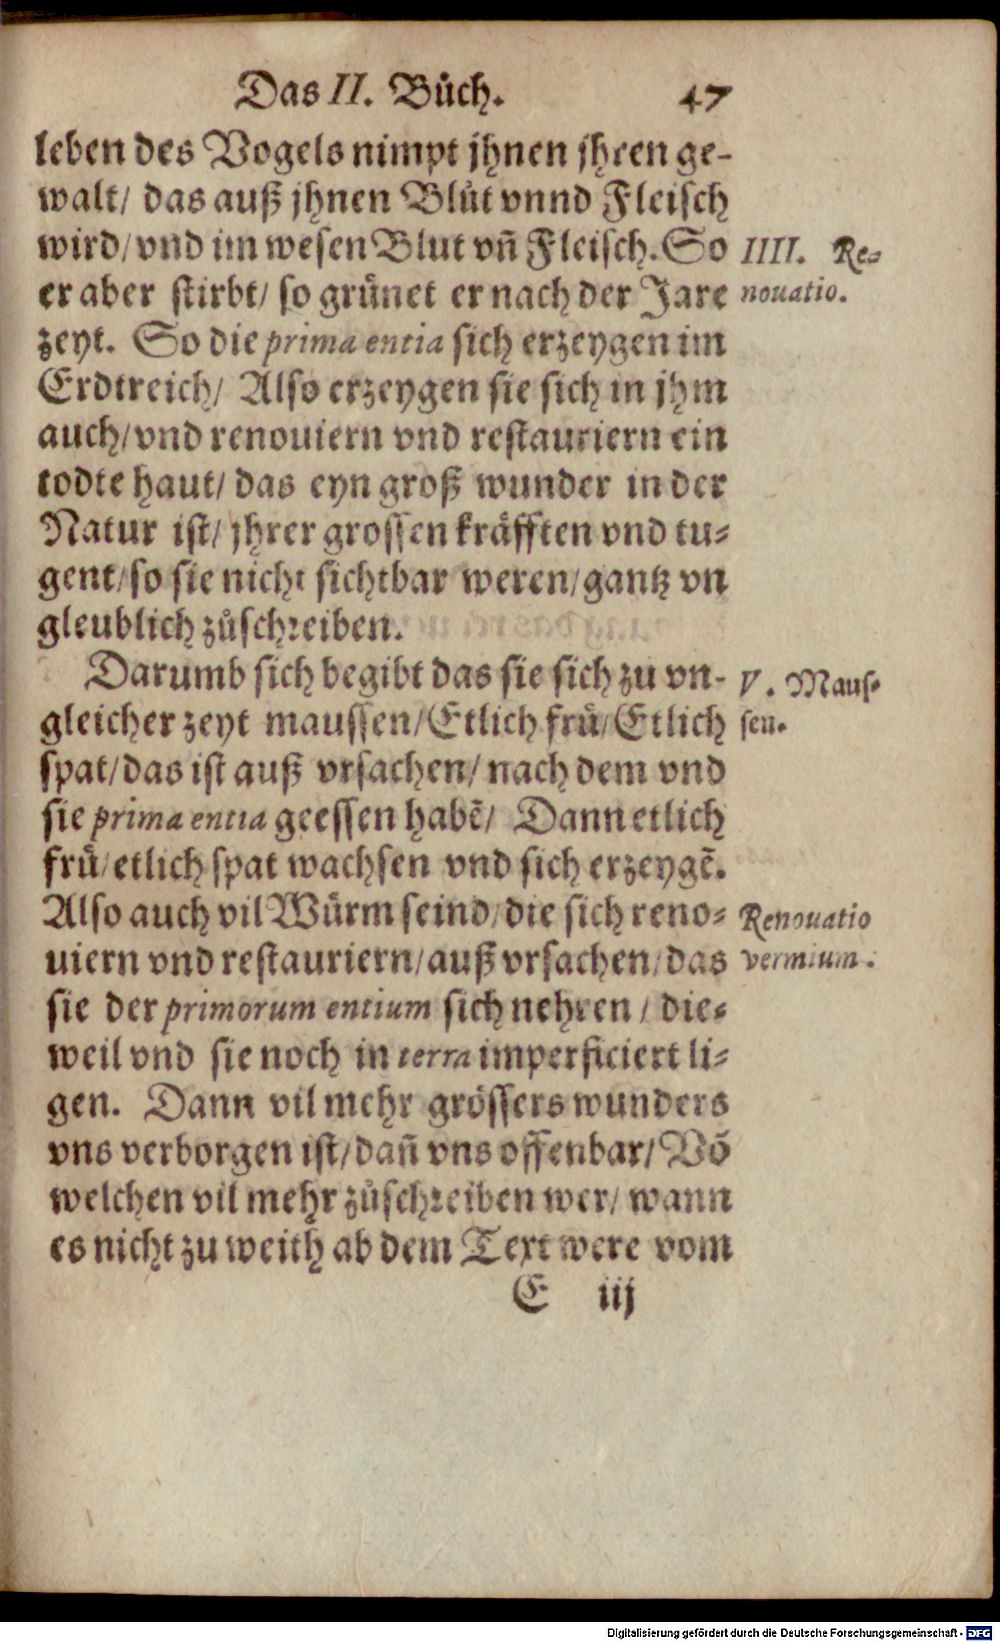 Das II. Bůch. 47
leben des Vogels nimpt jhnen jhren ge-
walt/ das auß jhnen Blůt vnnd Fleisch
wird/ vnd im wesen Blut vñ Fleisch. So
er aber stirbt/ so grünet er nach der Jare
zeyt. So die prima entia sich erzeygen im
Erdtreich/ Also erzeygen sie sich in jhm
auch/ vnd renouiern vnd restauriern ein
todte haut/ das eyn groß wunder in der
Natur ist/ jhrer grossen kräfften vnd tu-
gent/ so sie nicht sichtbar weren/ gantz vn
gleublich zůschreiben.
IIII. Re-
nouatio.
Darumb sich begibt das sie sich zu vn-
gleicher zeyt maussen/ Etlich frů/ Etlich
spat/ das ist auß vrsachen/ nach dem vnd
sie prima entia geessen habẽ/ Dann etlich
frů/ etlich spat wachsen vnd sich erzeygẽ.
Also auch vil Würm seind/ die sich reno-
uiern vnd restauriern/ auß vrsachen/ das
sie der primorum entium sich nehren / die-
weil vnd sie noch in terra imperficiert li-
gen. Dann vil mehr grössers wunders
vns verborgen ist/ dañ vns offenbar/ Võ
welchen vil mehr zůschreiben wer/ wann
es nicht zu weith ab dem Text were vom
V. Maus-
sen.
Renouatio
vermium.
E iij
Digitalisierung gefördert durch die Deutsche Forschungsgemeinschaft - DFG